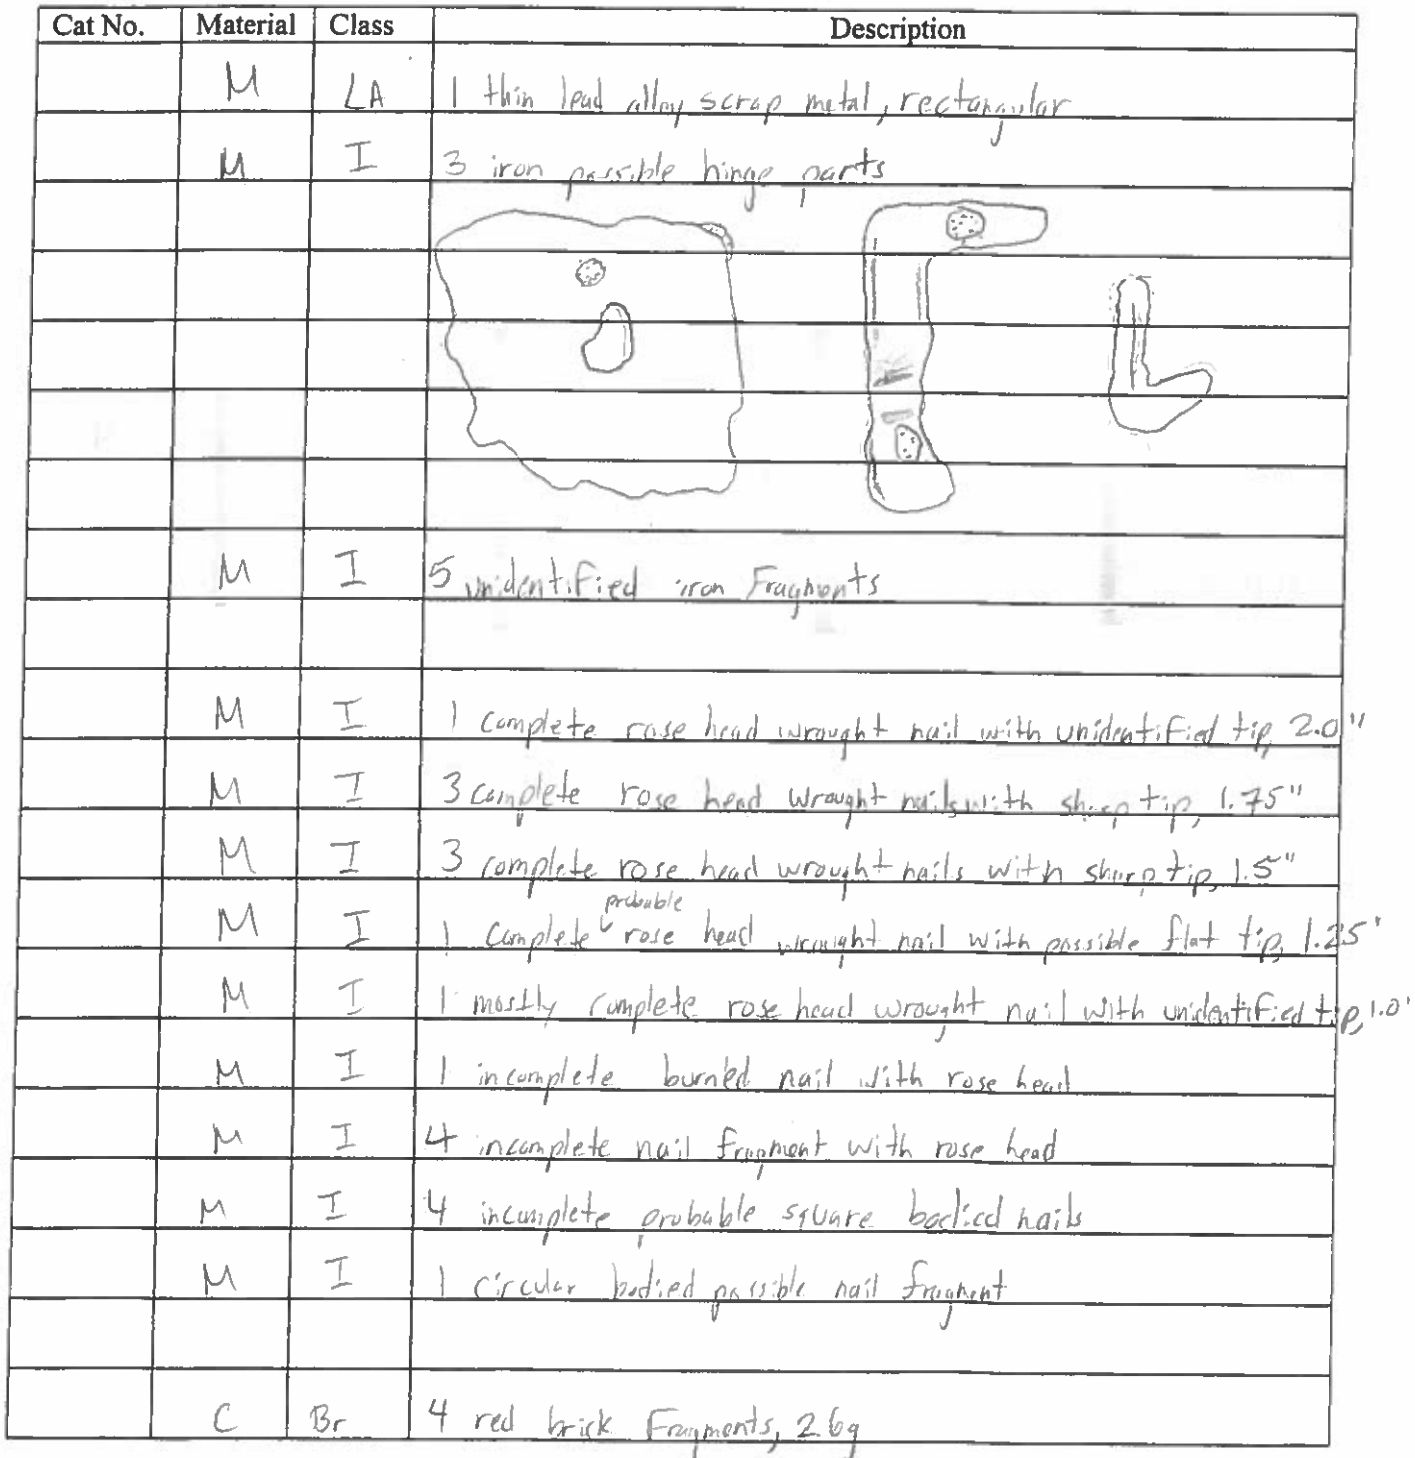 Cat No. Material Class Description
M LA 1 thin lead alloy scrap metal, rectangular
M I 3 iron possible hinge parts
M I 5 unidentified iron Fragments
M I 1 complete rose head wrought nail with unidentified tip, 2.0"
M I 3 complete rose head wrought nails with sharp tip, 1.75"
M I 3 complete rose head wrought nails with sharp tip, 1.5"
probable
M I 1 complete rose head wrought nail with possible flat tip, 1.25"
M I 1 mostly complete rose head wrought nail with unidentified tip, 1.0"
M I 1 incomplete burned nail with rose head
M I 4 incomplete nail fragment with rose head
M I 4 incomplete probable square bodied nails
M I 1 circular bodied possible nail fragment
C Br 4 red brick Fragments, 2.6g